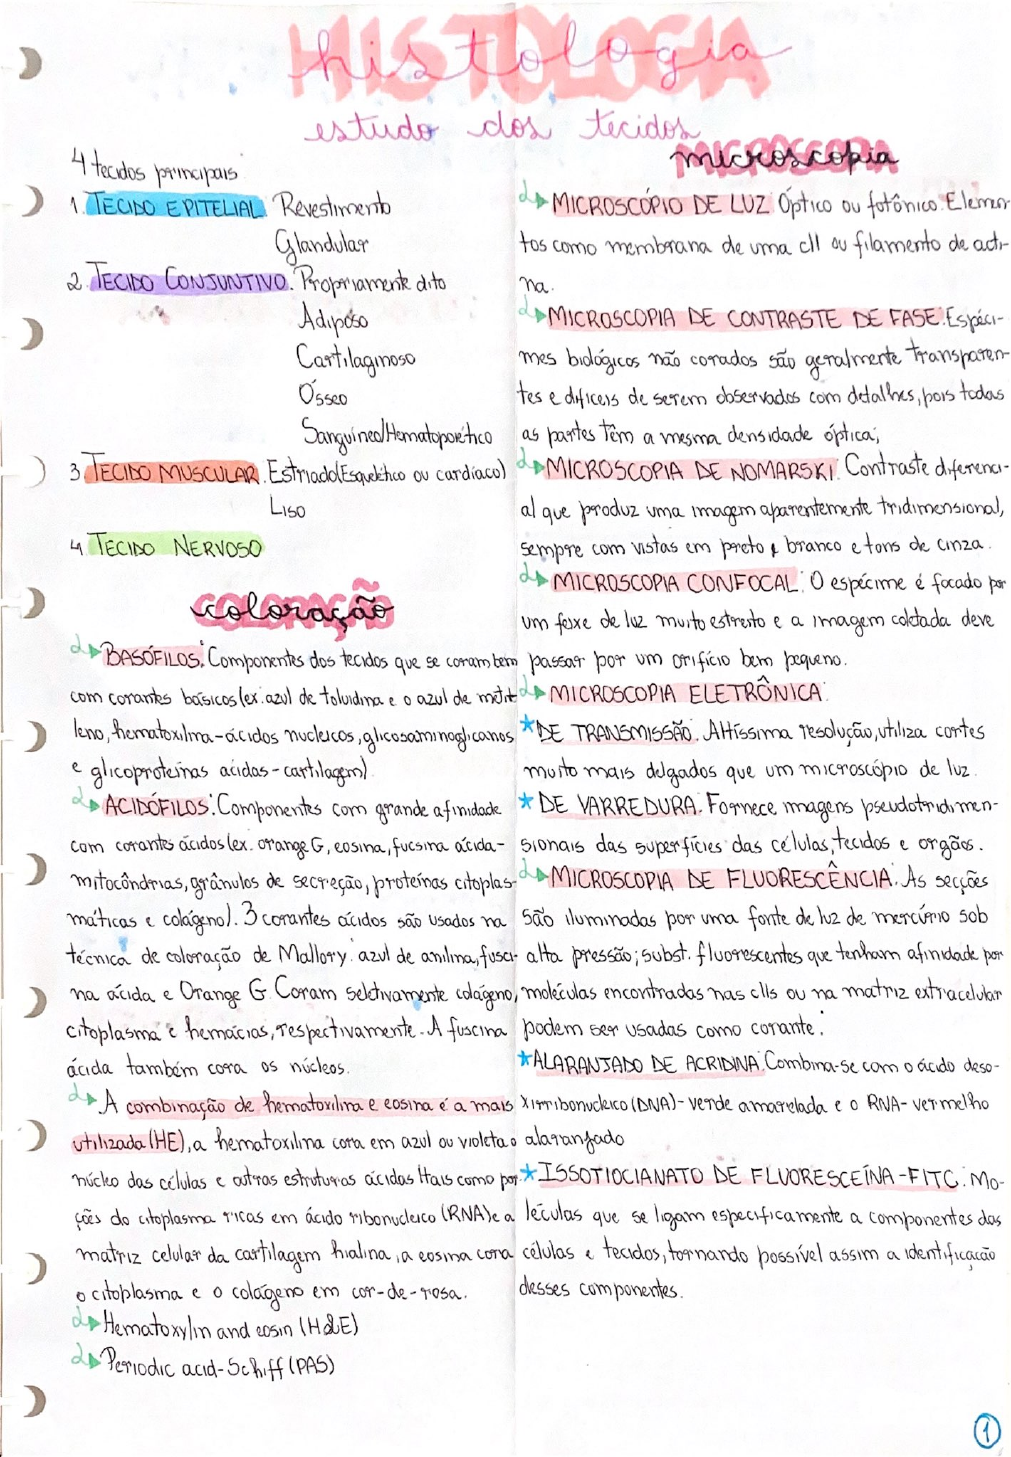 HISTOLOGIA
histologia
estudo dos tecidos
4 tecidos principais
1. TECIDO EPITELIAL. Revestimento
Glandular
2. TECIDO CONJUNTIVO. Propriamente dito
Adiposo
Cartilaginoso
Ósseo
Sanguíneo/Hematopoiético
3. TECIDO MUSCULAR. Estriado(Esquelético ou cardíaco)
Liso
4. TECIDO NERVOSO
COLORAÇÃO
coloração
BASÓFILOS: Componentes dos tecidos que se coram bem
com corantes básicos (ex: azul de toluidina e o azul de meti-
leno, hematoxilina-ácidos nucleicos, glicosaminoglicanos
e glicoproteínas ácidas-cartilagem)
ACIDÓFILOS: Componentes com grande afinidade
com corantes ácidos (ex. orange G, eosina, fucsina ácida-
mitocôndrias, grânulos de secreção, proteínas citoplas-
máticas e colágeno). 3 corantes ácidos são usados na
técnica de coloração de Mallory: azul de anilina, fusci-
na ácida e Orange G. Coram seletivamente colágeno,
citoplasma e hemácias, respectivamente. A fuscina
ácida também cora os núcleos.
A combinação de hematoxilina e eosina é a mais
utilizada (HE), a hematoxilina cora em azul ou violeta o
núcleo das células e outras estruturas ácidas (tais como por-
ções do citoplasma ricas em ácido ribonucleico (RNA)e a
matriz celular da cartilagem hialina, a eosina cora
o citoplasma e o colágeno em cor-de-rosa.
Hematoxylin and eosin (H&E)
Periodic acid-Schiff (PAS)
MICROSCOPIA
microscopia
MICROSCÓPIO DE LUZ: Óptico ou fotônico. Elemen-
tos como membrana de uma cll ou filamento de acti-
na.
MICROSCOPIA DE CONTRASTE DE FASE: Espéci-
mes biológicos não corados são geralmente transparen-
tes e difíceis de serem observados com detalhes, pois todas
as partes têm a mesma densidade óptica;
MICROSCOPIA DE NOMARSKI: Contraste diferenci-
al que produz uma imagem aparentemente tridimensional,
sempre com vistas em preto e branco e tons de cinza.
MICROSCOPIA CONFOCAL: O espécime é focado por
um feixe de luz muito estreito e a imagem coletada deve
passar por um orifício bem pequeno.
MICROSCOPIA ELETRÔNICA:
* DE TRANSMISSÃO: Altíssima resolução, utiliza cortes
muito mais delgados que um microscópio de luz.
* DE VARREDURA: Fornece imagens pseudotridimen-
sionais das superfícies das células, tecidos e orgãos.
MICROSCOPIA DE FLUORESCÊNCIA: As secções
são iluminadas por uma fonte de luz de mercúrio sob
alta pressão; subst. fluorescentes que tenham afinidade por
moléculas encontradas nas clls ou na matriz extracelular
podem ser usadas como corante:
* ALARANJADO DE ACRIDINA: Combina-se com o ácido deso-
xirribonucleico (DNA)- verde amarelada e o RNA- vermelho
alaranjado
* ISSOTIOCIANATO DE FLUORESCEÍNA-FITC: Mo-
léculas que se ligam especificamente a componentes das
células e tecidos, tornando possível assim a identificação
desses componentes.
1